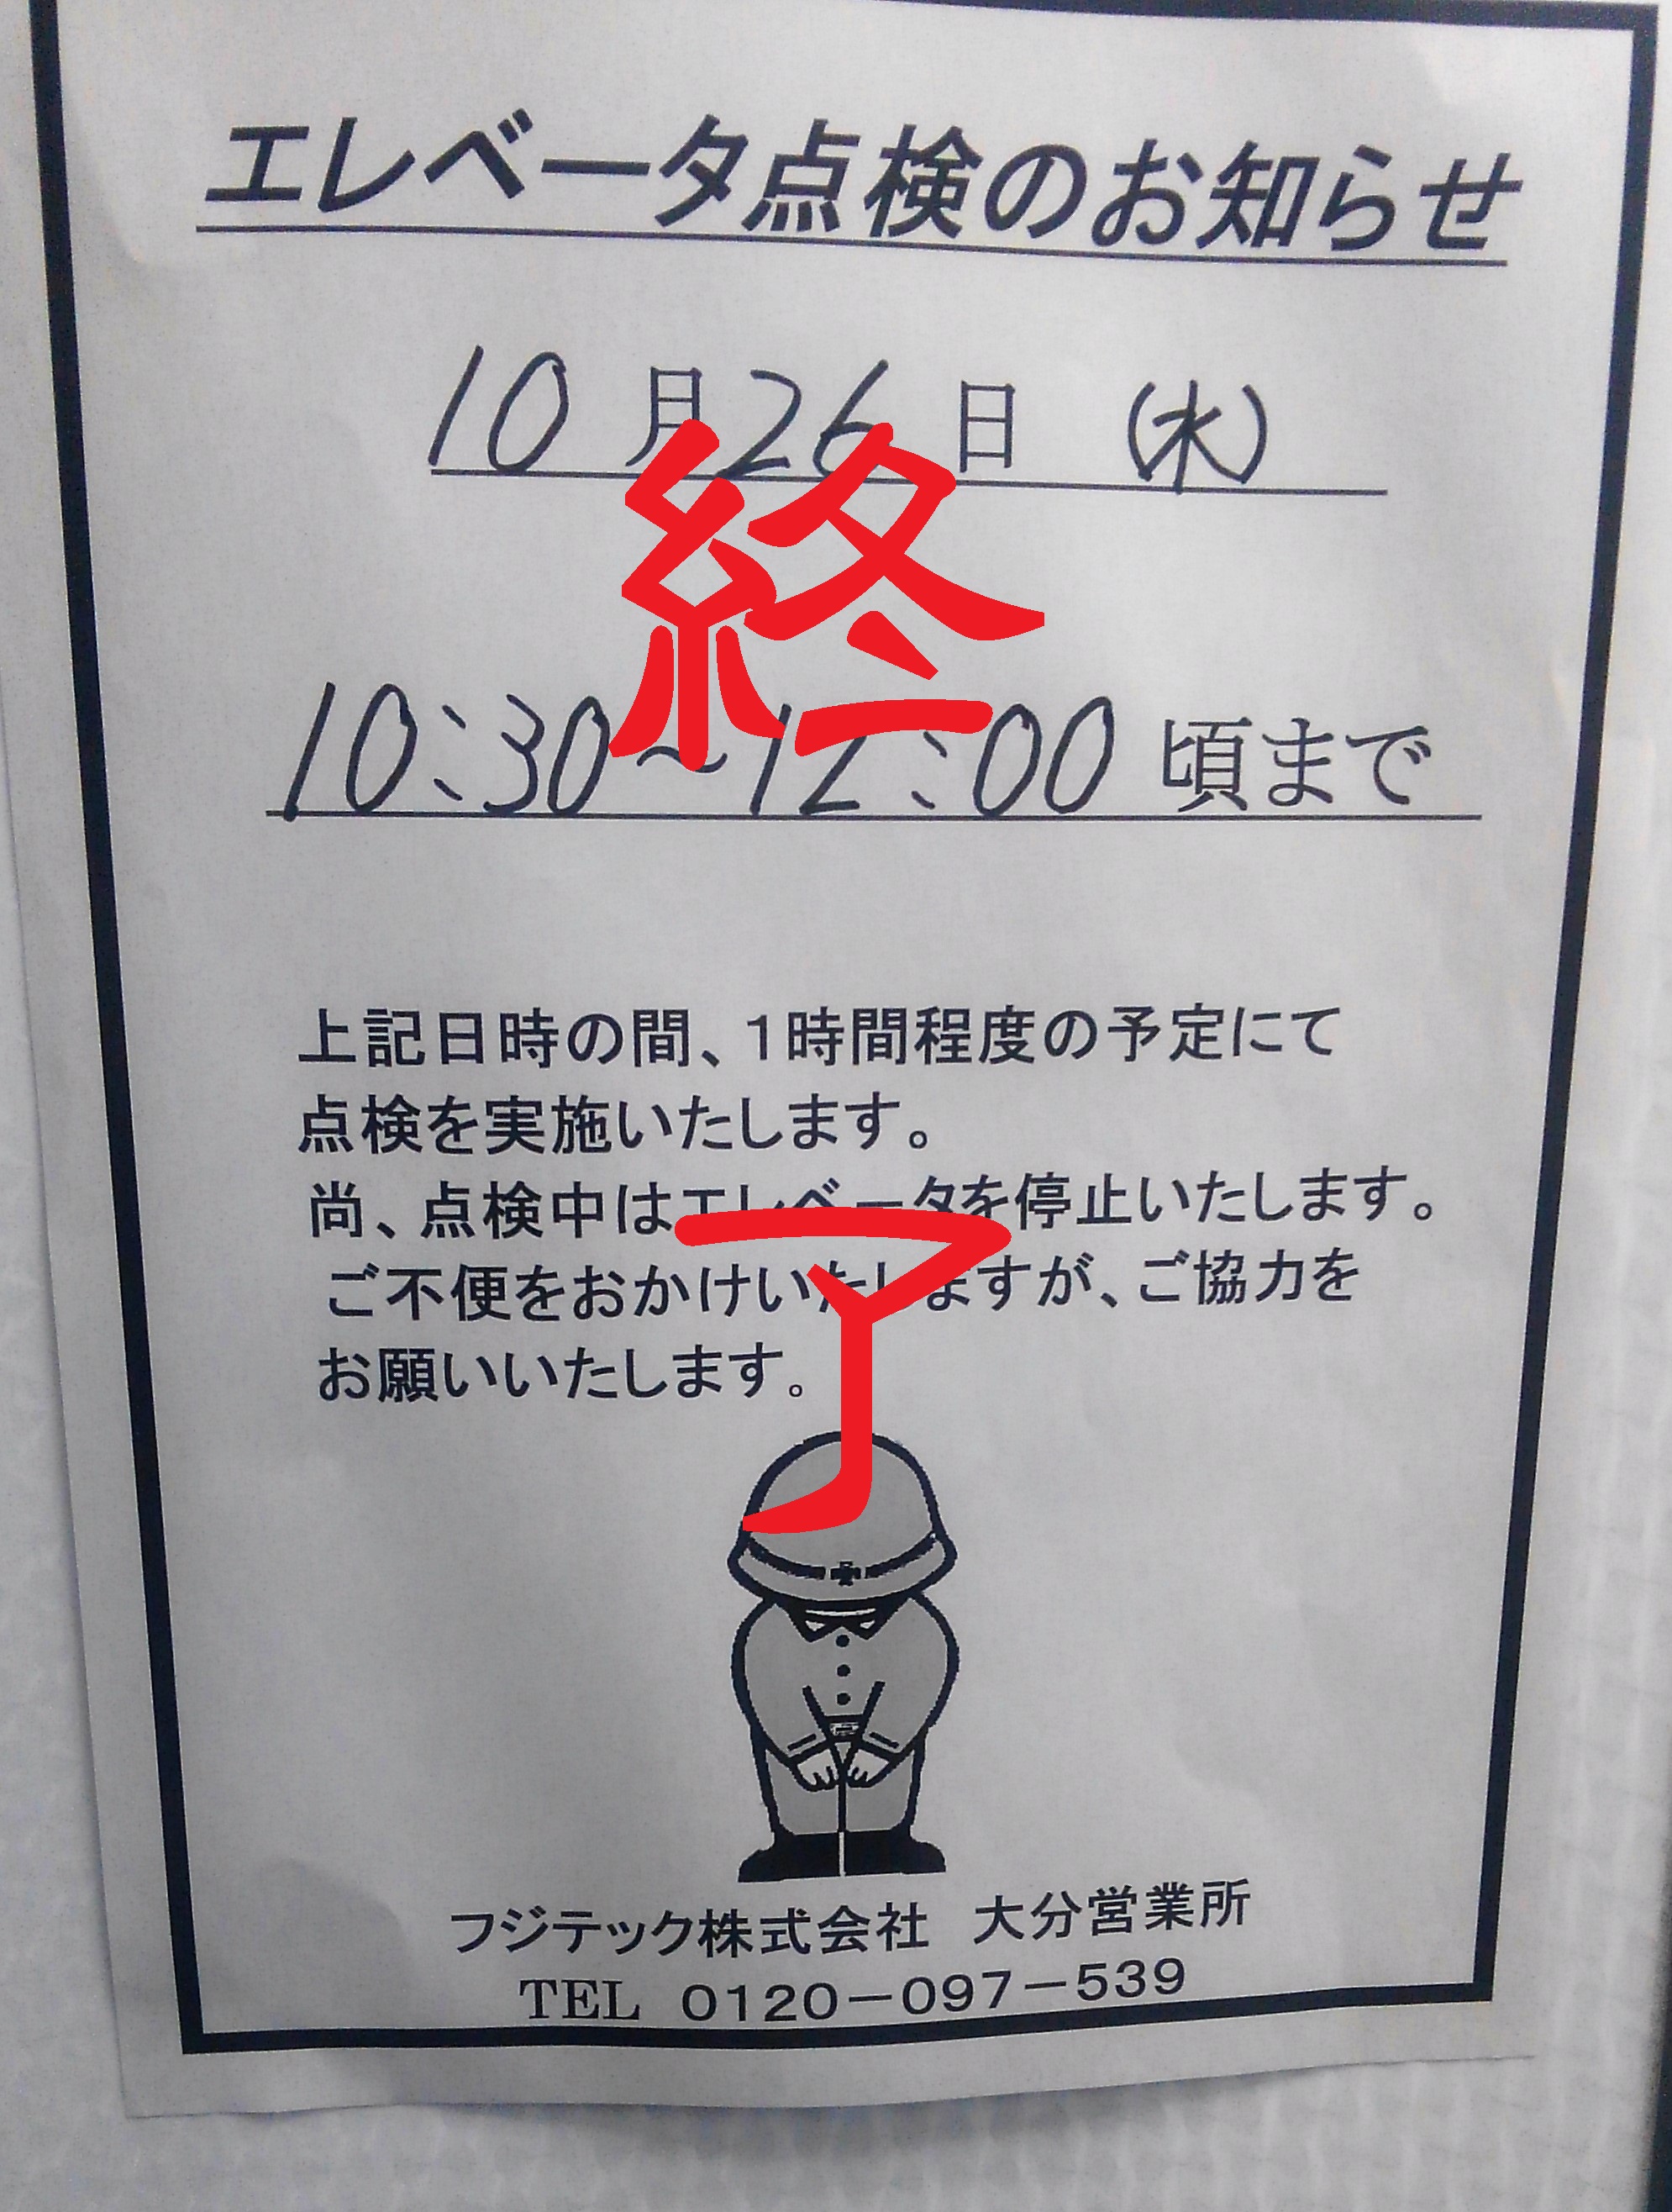 エレベータ点検のお知らせ
10月26日 (水)
終
10:30～12:00頃まで
上記日時の間、1時間程度の予定にて
点検を実施いたします。
尚、点検中はエレベータを停止いたします。
了
ご不便をおかけいたしますが、ご協力を
お願いいたします。
フジテック株式会社 大分営業所
TEL 0120－097－539